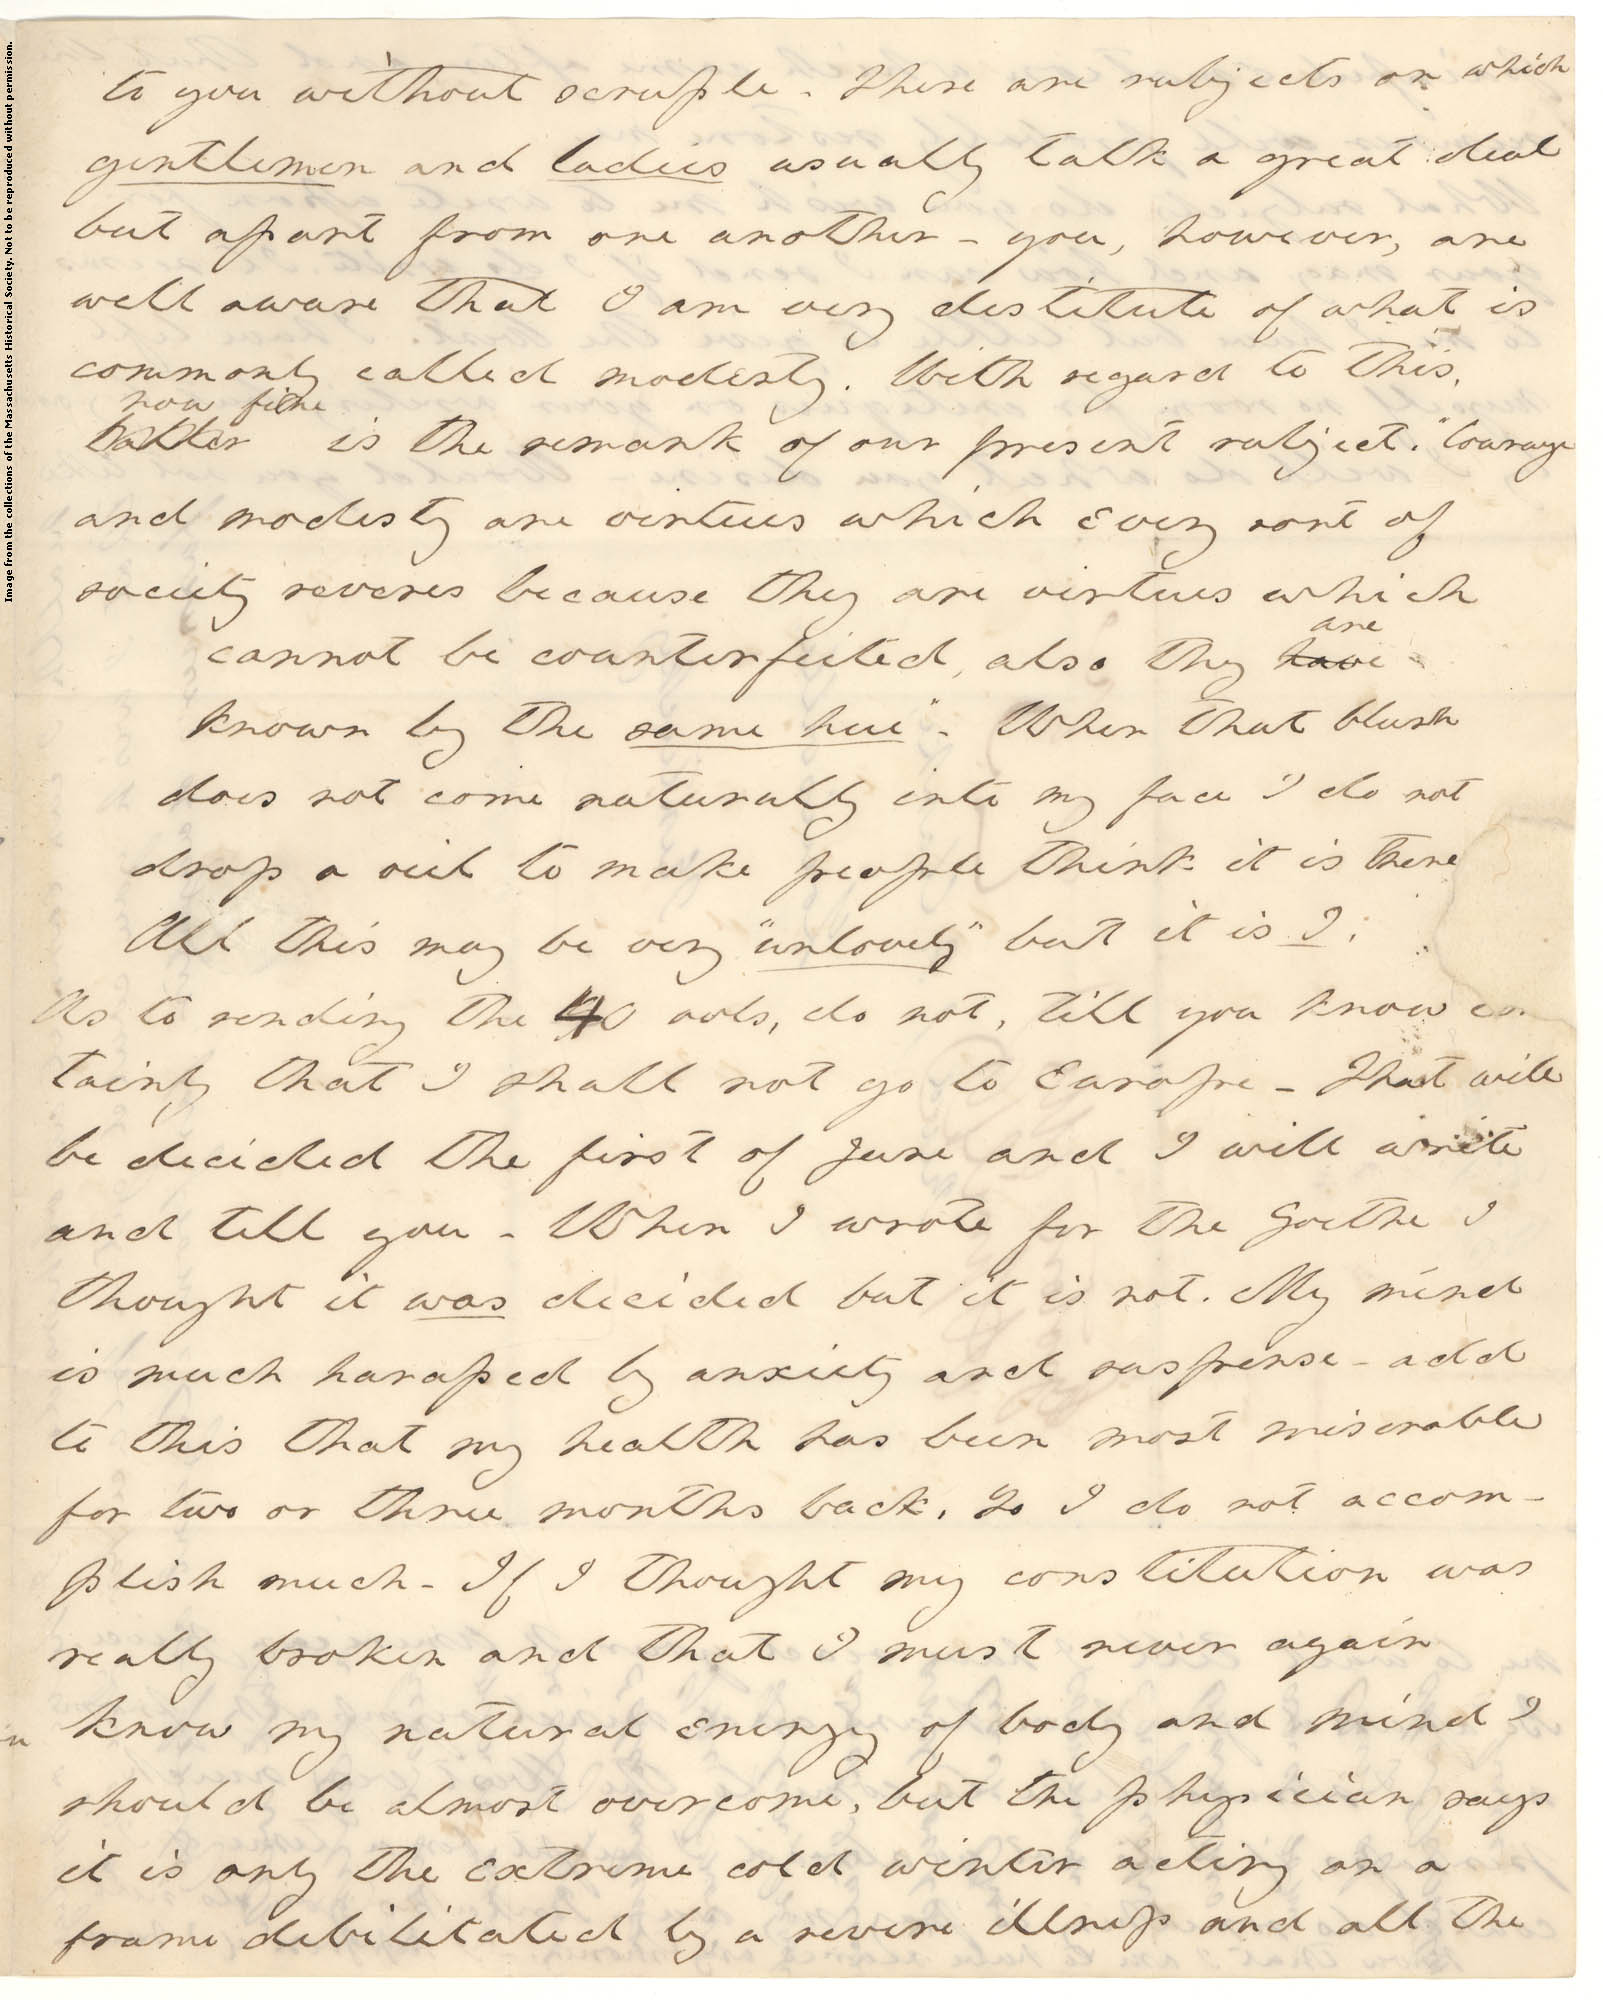 Image from the collections of the Massachusetts Historical Society. Not to be reproduced without permission.
to you without scruple - There are subjects on which
gentlemen and ladies usually talk a great deal
but apart from one another - you, however, are
well aware that I am very destitute of what is
commonly called modesty. With regard to this,
how fine
is the remark of our present subject. "Courage
and modesty are virtues which every sort of
society reveres because they are virtues which
are
cannot be counterfeited, also they have
known by the same hue". When that blush
does not come naturally into my face I do not
drop a veil to make people think it is there
All this may be very "unlovely" but it is I.
As to sending the 40 vols, do not, till you know cer
tainly that I shall not go to Europe - That will
be decided the first of June and I will write
and tell you - When I wrote for the Goethe I
thought it was decided but it is not. My mind
is much harassed by anxiety and suspense - add
to this that my health has been most miserable
for two or three months back. So I do not accom-
plish much - If I thought my constitution was
really broken and that I must never again
know my natural energy of body and mind I
should be almost overcome, but the physician says
it is only the extreme cold winter acting on a
frame debilitated by a severe illness and all the